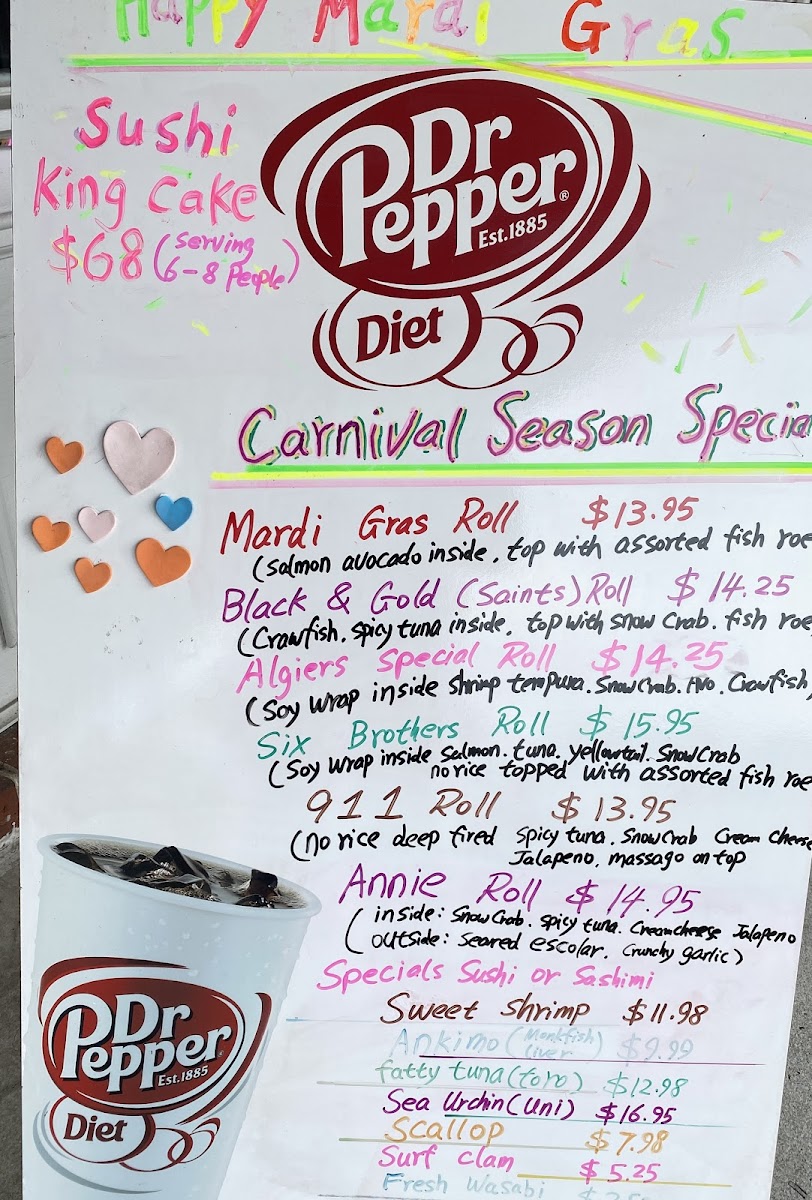 Happy Mardi Gras
Sushi
King Cake
$68 (serving
6-8 People)
Dr
Pepper®
Est.1885
Diet
Carnival Season Specia
Mardi Gras Roll $13.95
(salmon avocado inside, top with assorted fish roe
Black & Gold (Saints) Roll $14.25
(Crawfish. spicy tuna inside, top with snow Crab. fish roe
Algiers special Roll $14.25
(Soy wrap inside shrimp tempura. Snow Crab. Avo. Crawfish)
Six Brothers Roll $15.95
(Soy wrap inside salmon. tuna. yellowtail. Snow Crab
no rice topped with assorted fish roe
911 Roll $13.95
(no rice deep fired spicy tuna. Snow Crab Cream cheese
Jalapeno, massago on top
Annie Roll $14.95
(inside: Snow Crab. spicy tuna. Cream cheese Jalapeno
outside: Seared escolar. Crunchy garlic)
Specials Sushi or Sashimi
Sweet shrimp $11.98
Ankimo (Monkfish
Liver) $9.99
fatty tuna (toro) $12.98
Sea Urchin (uni) $16.95
Scallop $7.98
Surf clam $5.25
Fresh Wasabi
Dr
Pepper
Est.1885
Diet